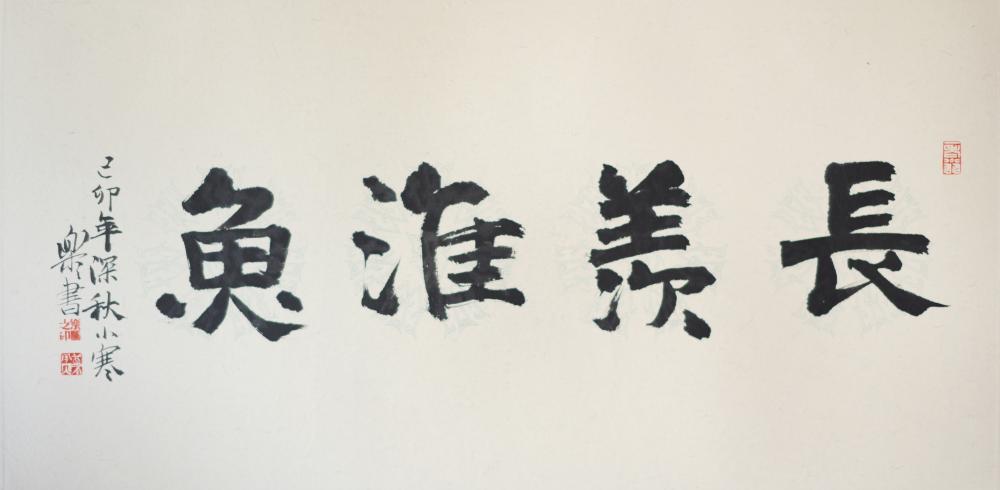 長羨淮魚
己卯年深秋小寒
樂書